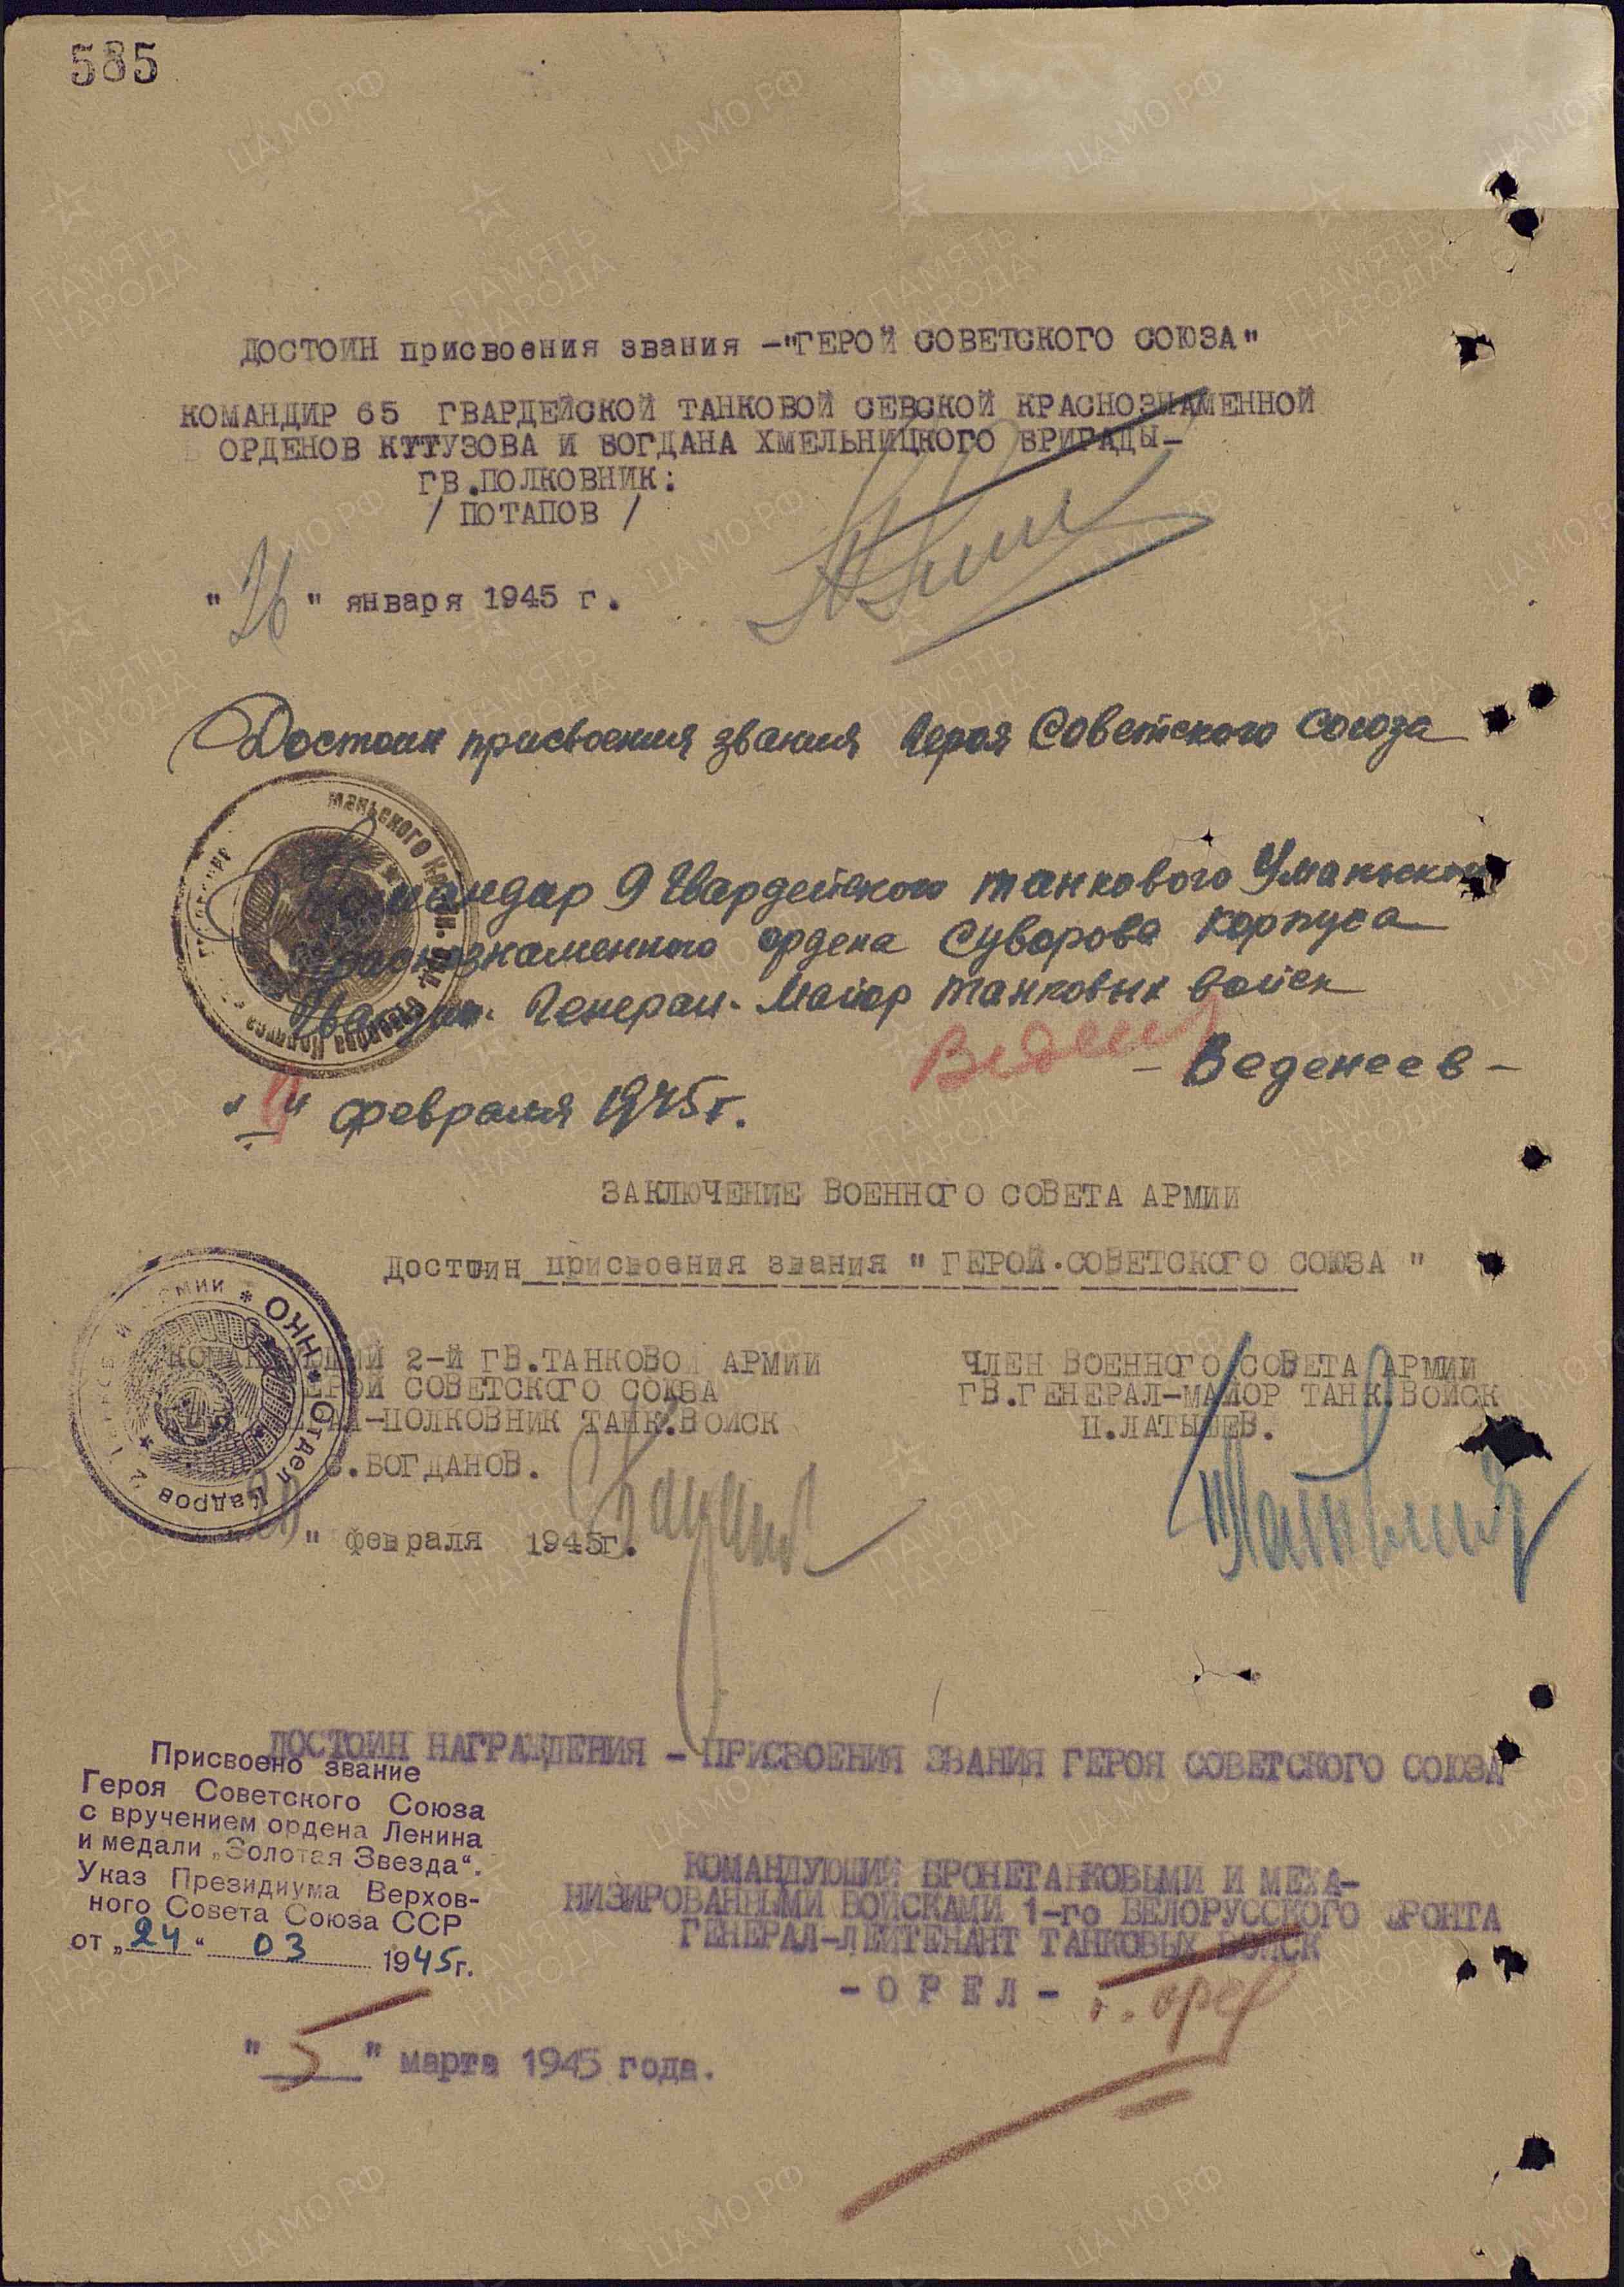 585
ДОСТОИН присвоения звания -"ГЕРОЙ СОВЕТСКОГО СОЮЗА"
КОМАНДИР 65 ГВАРДЕЙСКОЙ ТАНКОВОЙ СЕВСКОЙ КРАСНОЗНАМЕННОЙ
ОРДЕНОВ КТТУЗОВА И БОГДАНА ХМЕЛЬНИЦКОГО БРИГАДЫ-
ГВ.ПОЛКОВНИК:
/ ПОТАПОВ /
"26" января 1945 г.
Достоин присвоения звания Героя Советского Союза
Командир 9 Гвардейского танкового Уманьского
Краснознаменного ордена Суворова корпуса
Гвардии. Генерал-Майор танковых войск
- Веденеев -
" " февраля 1945г.
ЗАКЛЮЧЕНИЕ ВОЕННОГО СОВЕТА АРМИИ
достоин присвоения звания " ГЕРОЙ.СОВЕТСКОГО СОЮЗА "
КОМАНДУЮЩИЙ 2-Й ГВ.ТАНКОВОЙ АРМИИ
ГЕРОЙ СОВЕТСКОГО СОЮЗА
-ПОЛКОВНИК ТАНК.ВОЙСК
С.БОГДАНОВ.
ЧЛЕН ВОЕННОГО СОВЕТА АРМИИ
ГВ.ГЕНЕРАЛ-МАЙОР ТАНК.ВОЙСК
П.ЛАТЫШЕВ.
НКО * Отдел Кадров * 2 армии *
" февраля 1945г.
ДОСТОИН НАГРАЖДЕНИЯ - ПРИСВОЕНИЯ ЗВАНИЯ ГЕРОЯ СОВЕТСКОГО СОЮЗА
Присвоено звание
Героя Советского Союза
с вручением ордена Ленина
и медали „Золотая Звезда".
Указ Президиума Верхов-
ного Совета Союза ССР
от „24" 03 1945г.
КОМАНДУЮЩИЙ БРОНЕТАНКОВЫМИ И МЕХА-
НИЗИРОВАННЫМИ ВОЙСКАМИ 1-го БЕЛОРУССКОГО ФРОНТА
ГЕНЕРАЛ-ЛЕЙТЕНАНТ ТАНКОВЫХ ВОЙСК
- О Р Е Л -
"5" марта 1945 года.
ПАМЯТЬ НАРОДА
ЦА МО РФ